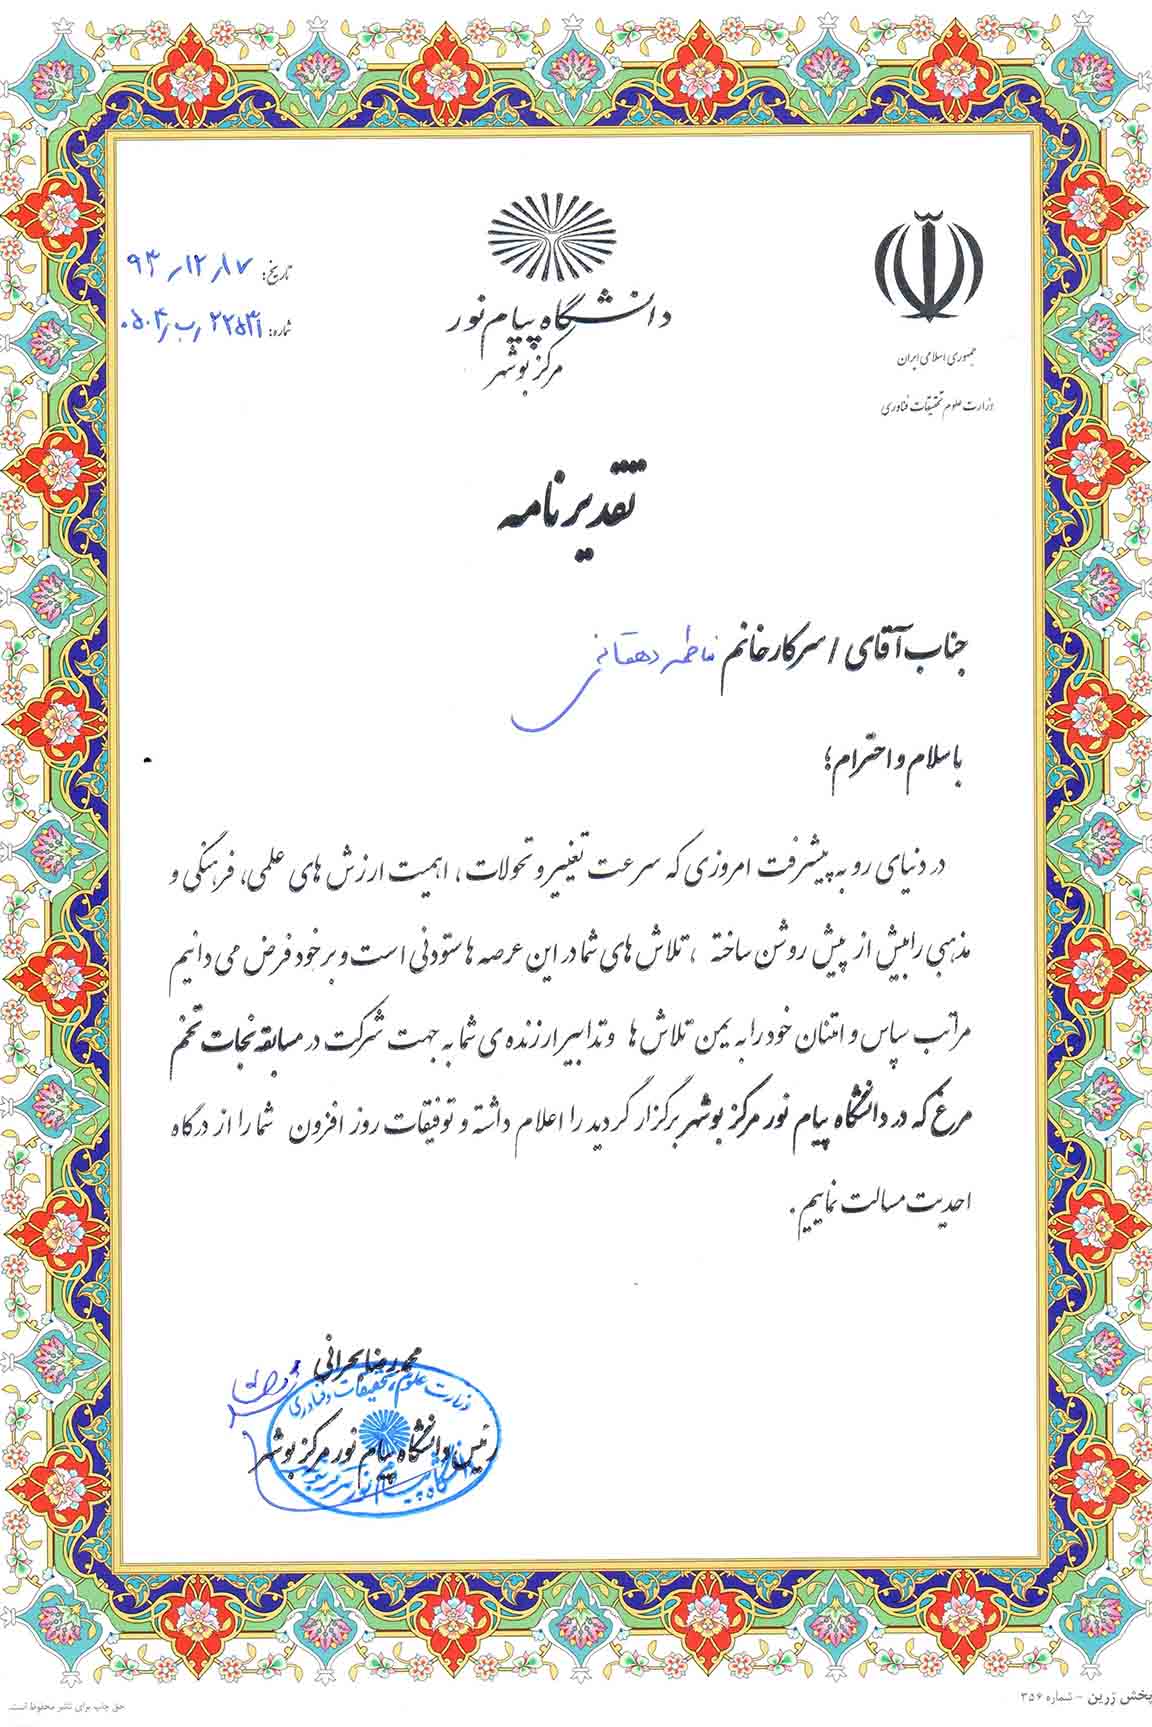 جمهوری اسلامی ایران
وزارت علوم تحقیقات فناوری
دانشگاه پیام نور
مرکز بوشهر
تاریخ: ۹۳/۱۲/۱۷
شماره:
تقدیرنامه
جناب آقای / سرکار خانم فاطمه دهقانی
با سلام و احترام؛
در دنیای رو به پیشرفت امروزی که سرعت تغییر و تحولات، اهمیت ارزش های علمی، فرهنگی و
مذهبی را بیش از پیش روشن ساخته ، تلاش های شما در این عرصه ها ستودنی است و بر خود فرض می دانیم
مراتب سپاس و امتنان خود را به یمن تلاش ها و تدابیر ارزنده ی شما به جهت شرکت در مسابقه نجات تخم
مرغ که در دانشگاه پیام نور مرکز بوشهر برگزار گردید را اعلام داشته و توفیقات روز افزون شما را از درگاه
احدیت مسالت نماییم.
محمدرضا بحرانی
رئیس دانشگاه پیام نور مرکز بوشهر
وزارت علوم، تحقیقات و فناوری
دانشگاه پیام نور مرکز بوشهر
پخش زرین - شماره ۳۵۶
حق چاپ برای ناشر محفوظ است.